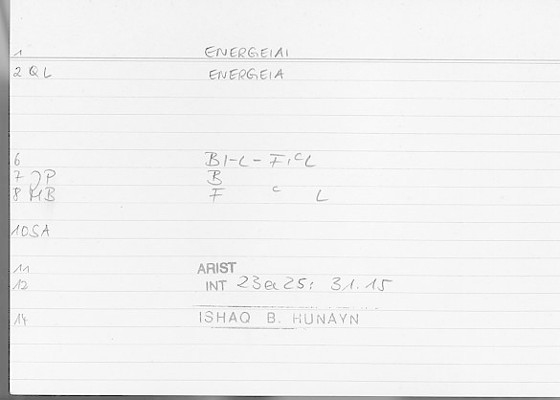 1 ENERGEIAI
2 QL ENERGEIA
6 BI-L-FIᶜL
7 JP B
8 MB F ᶜ L
10SA
11 ARIST
12 INT 23a25; 31.15
14 ISHAQ B. HUNAYN